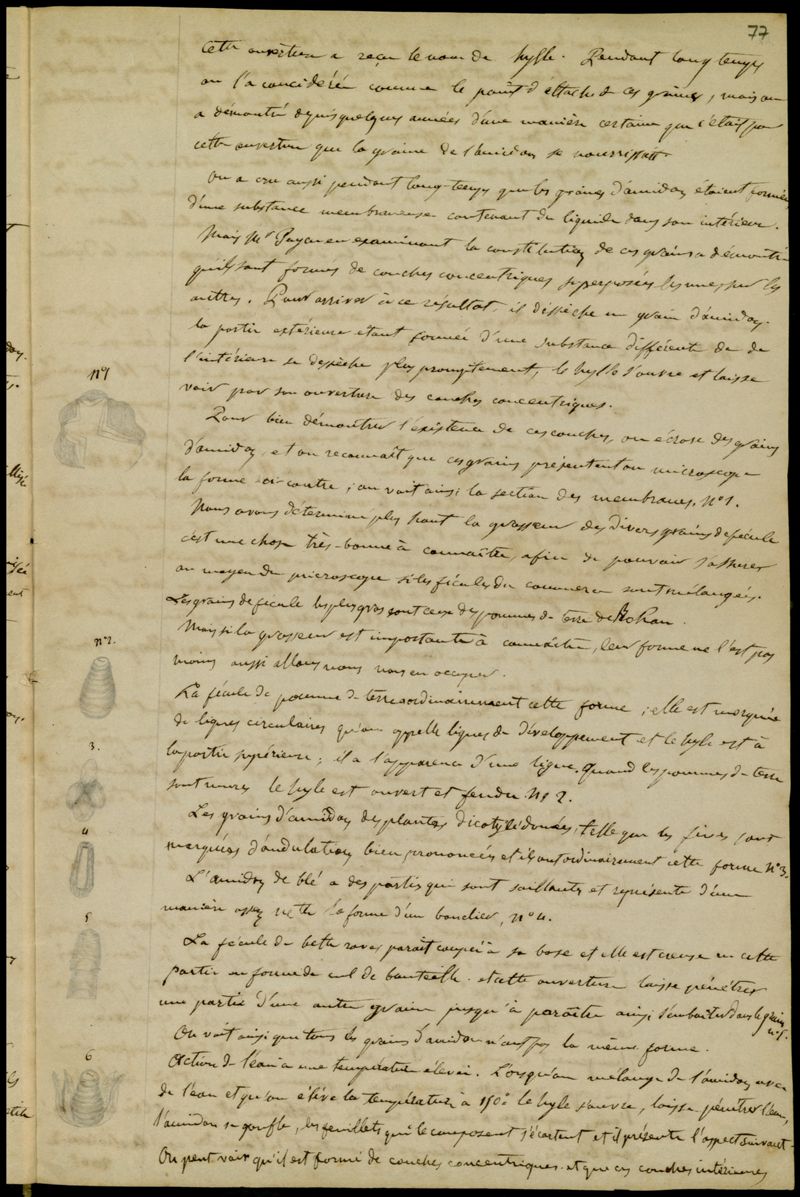 77
cette ouverture a reçu le nom de hyle. Pendant long temps
on l'a considérée comme le point d'attache de ces graines, mais on
a démontré depuis quelques années d'une manière certaine que c'était par
cette ouverture que la graine de l'amidon se nourrissait
On a cru aussi pendant long-temps que les graines d'amidon étaient formées
d'une substance membraneuse contenant du liquide dans son intérieur.
Mais Mr Payen en examinant la constitution de ces grains a démontré
qu'ils sont formés de couches concentriques superposées les unes sur les
autres. Pour arriver à ce résultat, il déssèche un grain d'amidon.
la partie extérieure etant formée d'une substance différente de
l'intérieur se dessèche plus promptement, le hyle s'ouvre et laisse
voir par son ouverture des couches concentriques.
nº1
Pour bien démontrer l'existence de ces couches, on écrase des grains
d'amidon, et on reconnaît que ces grains présentent au microscope
la forme ci-contre, on voit ainsi la section des membranes. Nº1.
Nous avons déterminé plus haut la grosseur des divers grains de fécule
c'est une chose très-bonne à connaître, afin de pouvoir s'assurer
au moyen du microscope si les fécules du commerce sont mélangées.
Les grains de fécule les plus gros sont ceux des pommes de terre de Rohan.
nº2.
Mais si la grosseur est importante à connaître, leur forme ne l'est pas
moins aussi allons nous nous en occuper.
La fécule de pomme de terre a ordinairement cette forme; elle est marquée
de lignes circulaires qu'on appelle lignes de développement et le hyle est à
3.
la partie supérieure; il a l'apparence d'une ligne. Quand les pommes de terre
sont mures le hyle est ouvert et fendu Nº2.
4
Les grains d'amidon des plantes dicotylédonées, telle que les fèves sont
marquées d'ondulation bien prononcées et ils ont ordinairement cette forme Nº3.
L'amidon de blé a des parties qui sont saillantes et représente d'une
manière assez nette la forme d'un bouclier, nº4.
5
La fécule de bette raves paraît coupée à sa base et elle est creuse en cette
partie en forme de cul de bouteille et cette ouverture laisse pénétrer
une partie d'une autre grain jusqu'à paraître ainsi s'emboiter dans le grain
nº5.
On voit ainsi que tous les grains d'amidon n'ont pas la même forme.
6
Action de l'eau à une température élevée. Lorsqu'on mélange de l'amidon avec
de l'eau et qu'on élève la température à 150º le hyle s'ouvre, laisse pénétrer l'eau,
l'amidon se gonfle, les feuillets qui le composent s'écartent et il présente l'aspect suivant.
On peut voir qu'il est formé de couches concentriques et que ces couches intérieures